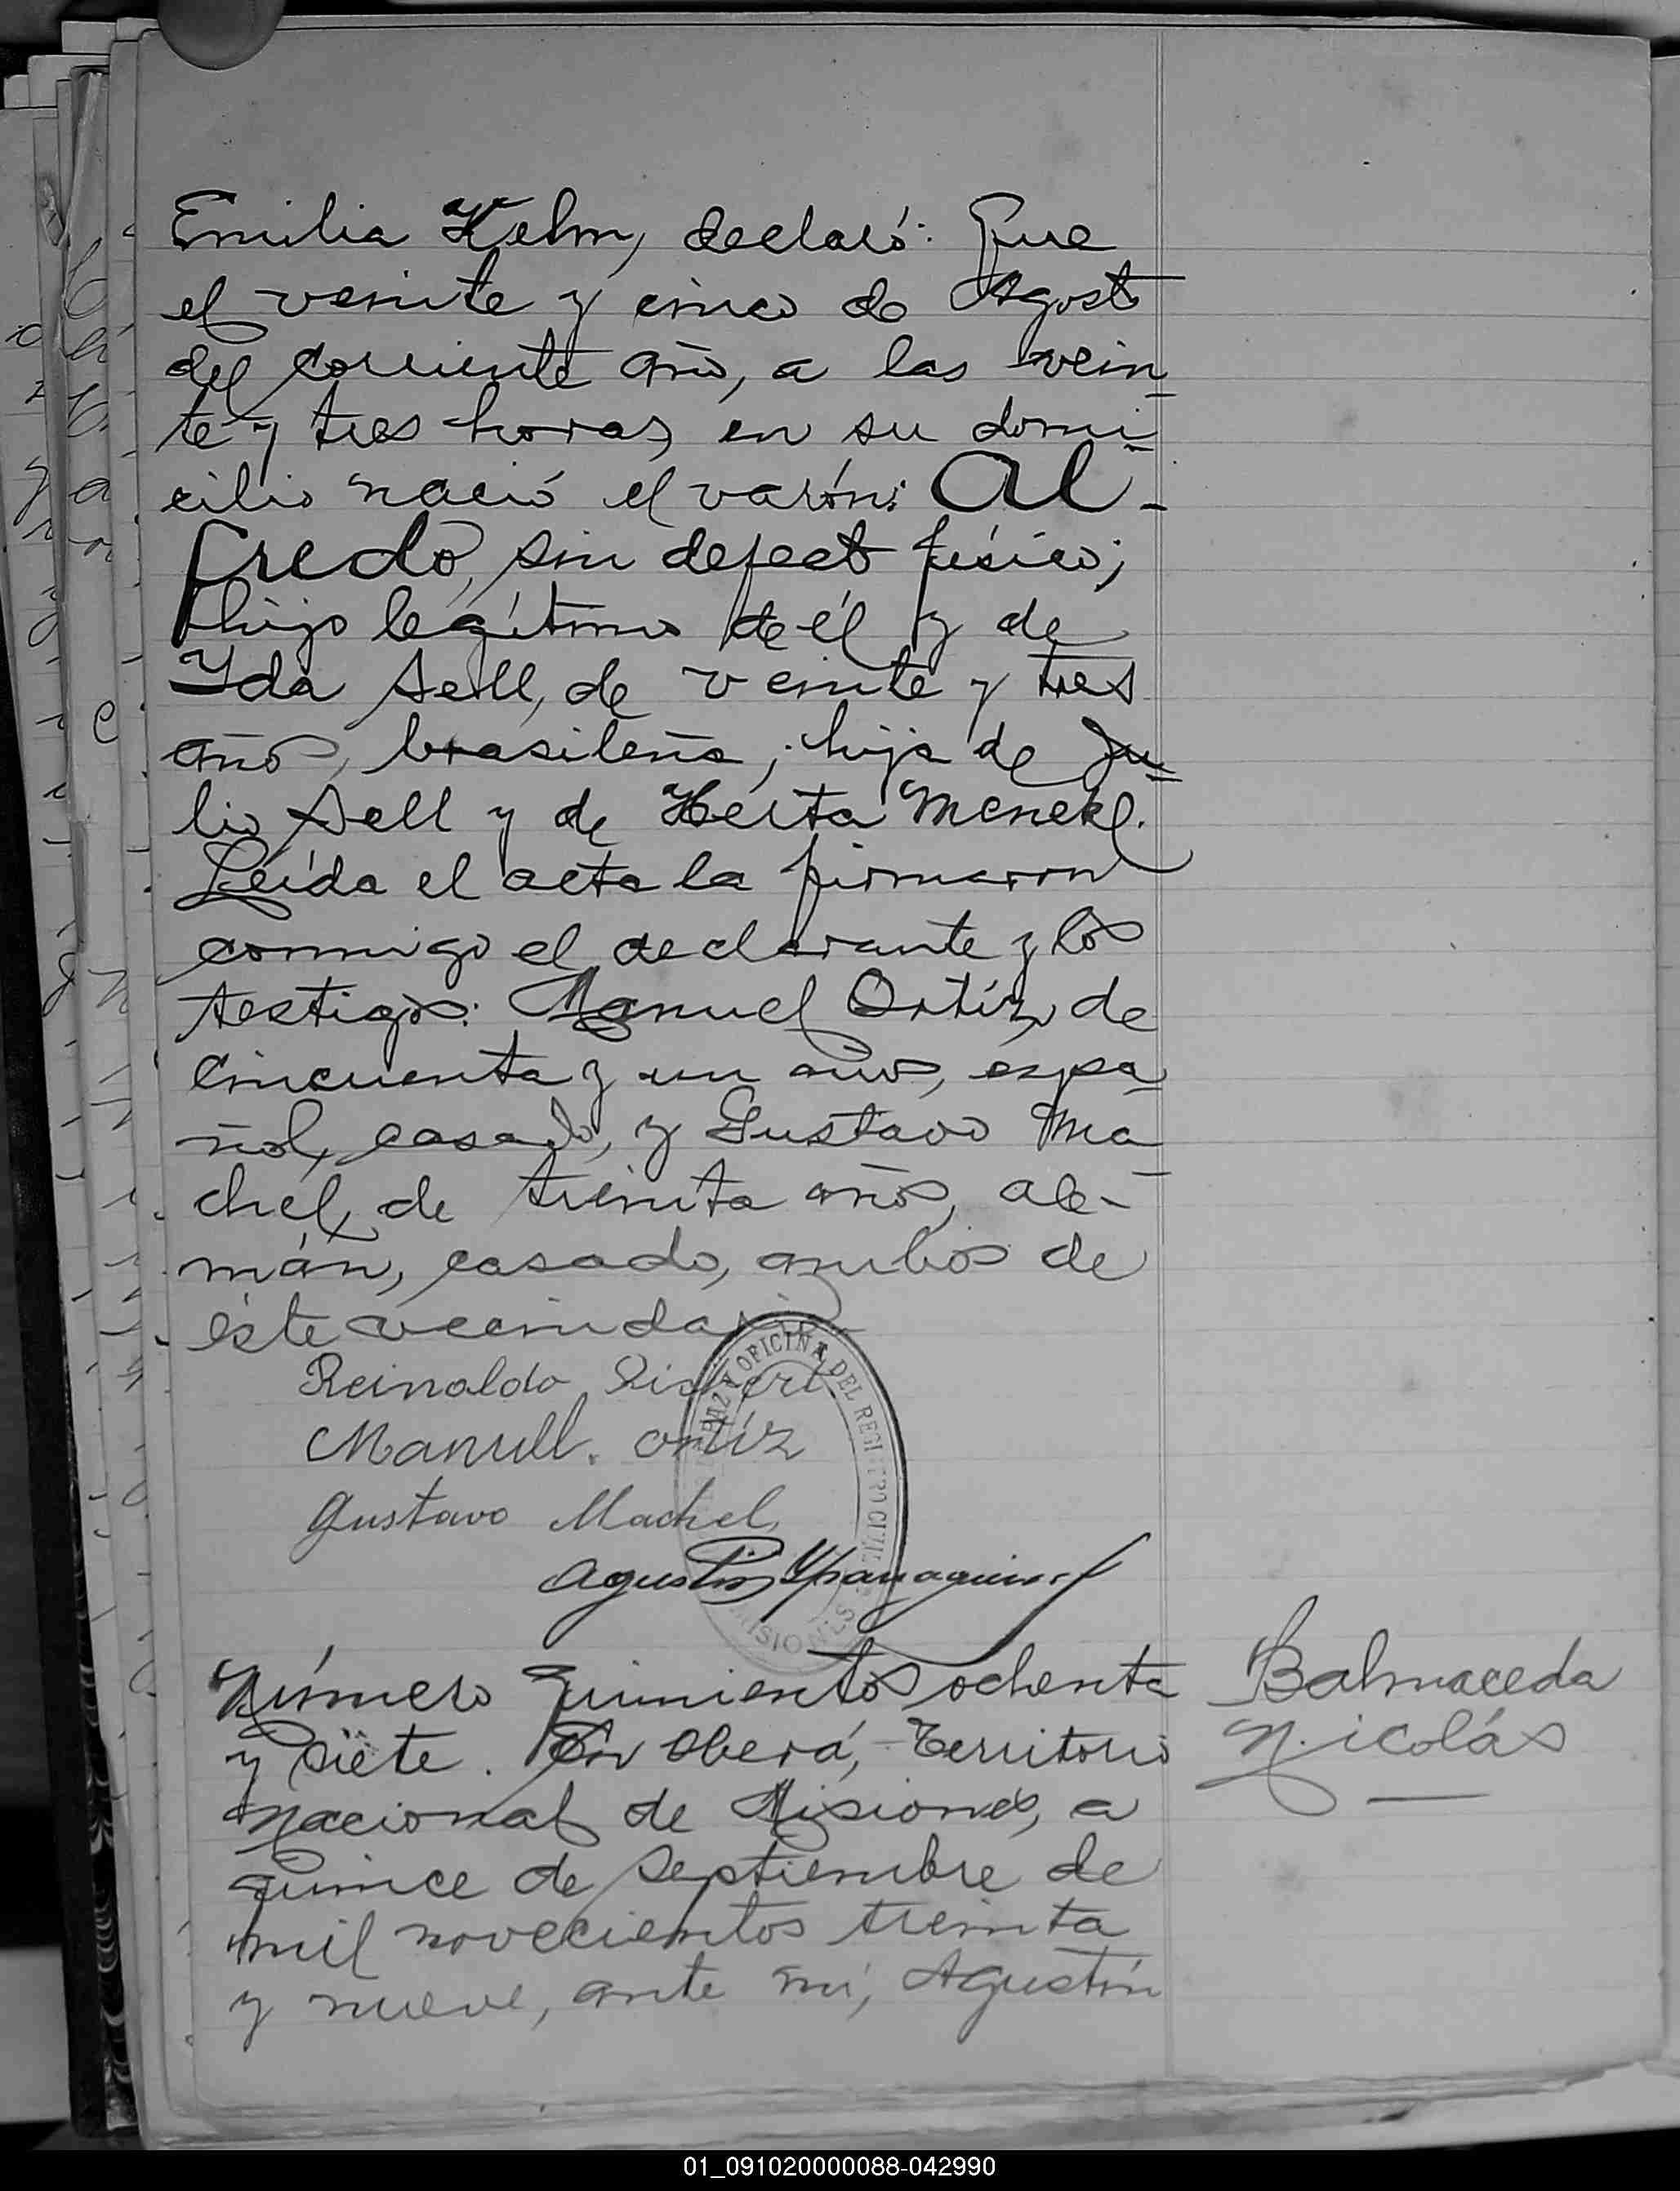 Emilia Kelm, declaró: Que
el veinte y cinco de Agosto
del corriente año, a las vein
te y tres horas, en su domi
cilio nació el varón: Al-
fredo, sin defecto físico;
hijo legítimo de él y de
Yda Sell, de veinte y tres
años, brasileña, hija de Ju
lio Sell y de Herta Menekl.
Leída el acta la firmaron
conmigo el declarante y los
testigos: Manuel Ortíz, de
cincuenta y un años, espa
ñol, casado, y Gustavo Ma
chel, de treinta años, ale-
mán, casado, ambos de
éste vecindario
Reinaldo
Manuel. Ortíz
Gustavo Machel
Agustin
PAZ Y OFICINA DEL REGISTRO CIVIL
MISIONES
Número quinientos ochenta
y siete. En Oberá, Territorio
Nacional de Misiones, a
quince de Septiembre de
mil novecientos treinta
y nueve, ante mí, Agustín
Balmaceda
Nicolás
01_091020000088-042990